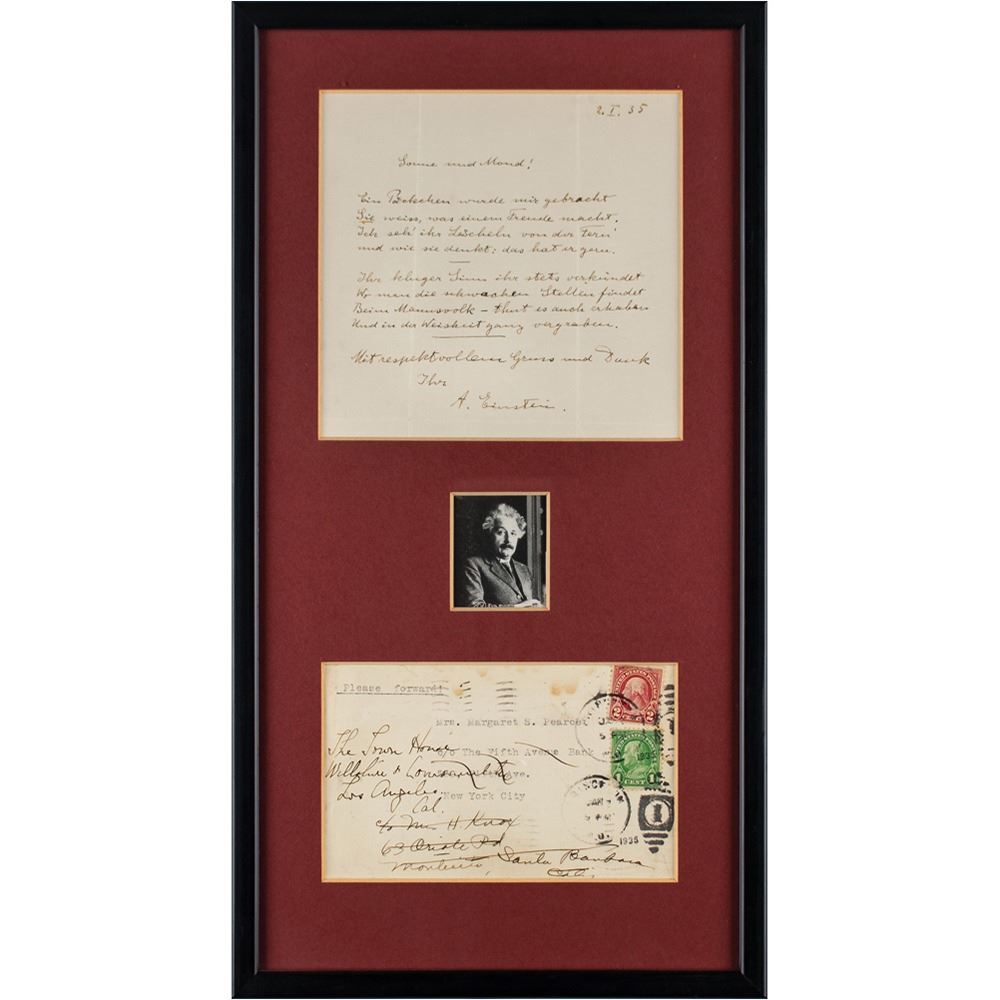 2. I. 35
Sonne und Mond!
Ein Päckchen wurde mir gebracht
Sie weiss, was einem Freude macht.
Ich seh' ihr Lächeln von der Fern'
und wie sie denkt: das hat er gern.
Ihr kluger Sinn ihr stets verkündet
Wo man die schwachen Stellen findet
Beim Mannsvolk – thut es auch erhaben
Und in der Weisheit ganz vergraben.
Mit respektvollem Gruss und Dank
Ihr
A. Einstein.
Please forward!
Mrs. Margaret S. Pearce
c/o The Fifth Avenue Bank
Ave.
New York City
The Town House
Wilshire &
Los Angeles
Cal.
c/o Mrs H. Knox
63 Oriole Rd
Montecito, Santa Barbara
Cal.
UNITED STATES POSTAGE
2 2
1935
UNITED STATES POSTAGE
1 CENT 1
PRINCETON
JAN
PM
N.J.
1935
1